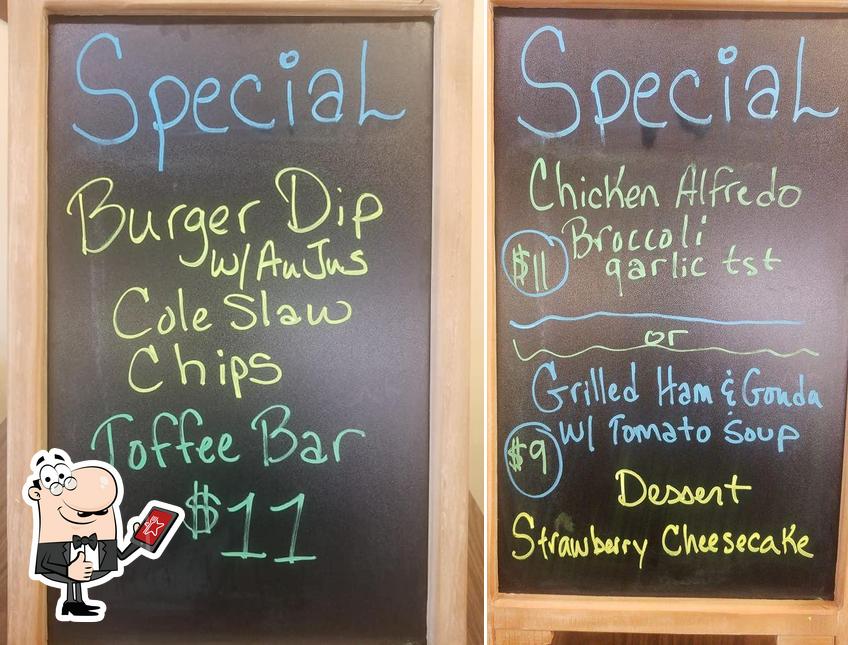 Special
Burger Dip
w/ Au Jus
Cole Slaw
Chips
Toffee Bar
$11
Special
Chicken Alfredo
Broccoli
$11 garlic tst
or
Grilled Ham & Gouda
w/ Tomato Soup
$9
Dessert
Strawberry Cheesecake